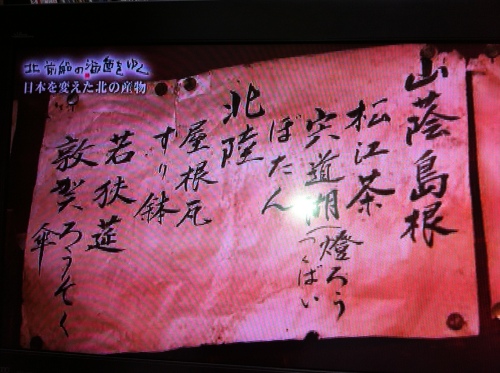 北前船の海道をゆく
日本を変えた北の産物
山蔭島根
松江茶
宍道湖(燈ろう
つくばい
ぼたん
北陸
屋根瓦
すり鉢
若狭莚
敦賀ろうそく
傘